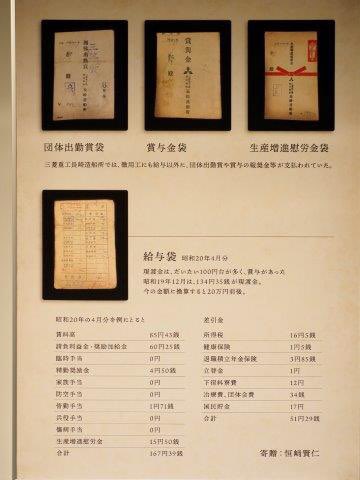 団体出勤賞袋
賞与金袋
生産増進慰労金袋
三菱重工長崎造船所では、徴用工にも給与以外に、団体出勤賞や賞与の報奨金等が支払われていた。
給与袋 昭和20年4月分
現渡金は、だいたい100円台が多く、賞与があった
昭和19年12月は、134円35銭が現渡金。
今の金額に換算すると20万円前後。
昭和20年の4月分を例にとると
賃料高 85円43銭
請負利益金・奨励加給金 60円25銭
臨時手当 0円
精勤奨励金 4円50銭
家族手当 0円
防空手当 0円
皆勤手当 1円71銭
兵役手当 0円
傷病手当 0円
生産増進慰労金 15円50銭
合計 167円39銭
差引金
所得税 16円5銭
健康保険 1円5銭
退職積立年金保険 3円85銭
立替金 1円
下宿料寮費 12円
治療費、団体会費 34銭
国民貯金 17円
合計 51円29銭
寄贈：恒崎賢仁